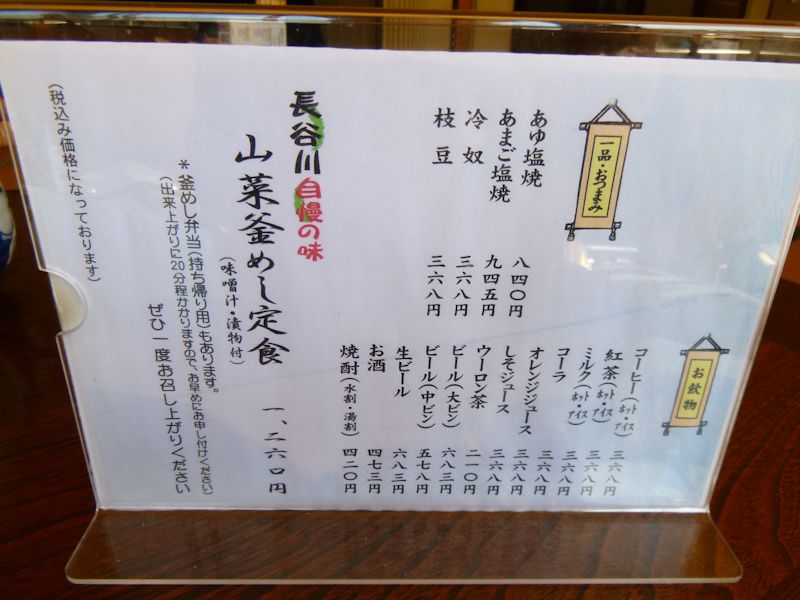 一品・おつまみ
あゆ塩焼 八四〇円
あまご塩焼 九四五円
冷奴 三六八円
枝豆 三六八円
お飲物
コーヒー(ホット・アイス) 三六八円
紅茶(ホット・アイス) 三六八円
ミルク(ホット・アイス) 三六八円
コーラ 三六八円
オレンジジュース 三六八円
しそジュース 三六八円
ウーロン茶 二一〇円
ビール(大ビン) 六八三円
ビール(中ビン) 五七八円
生ビール 六八三円
お酒 四七三円
焼酎(水割・湯割) 四二〇円
長谷川自慢の味
山菜釜めし定食 一、二六〇円
(味噌汁・漬物付)
*釜めし弁当(持ち帰り用)もあります。
(出来上がりに20分程かかりますので、お早めにお申し付けください)
ぜひ一度お召し上がりください
(税込み価格になっております)